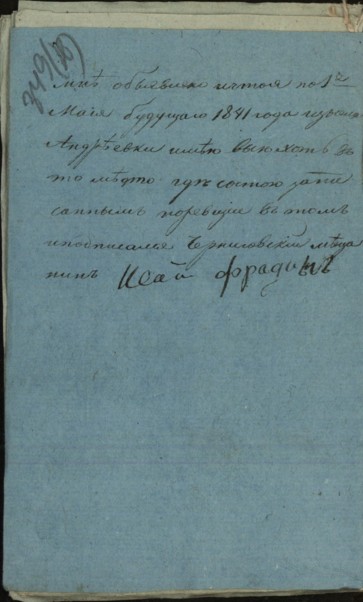 мнѣ объявлено и что я по 1е
Мая будущаго 1841 года из села
Андрѣевки имѣю выѣхоть въ
то мѣсто гдѣ состою запи
саннымъ по ревизіи в томъ
и подписалсе мѣща
нинъ Исай Фрадинъ